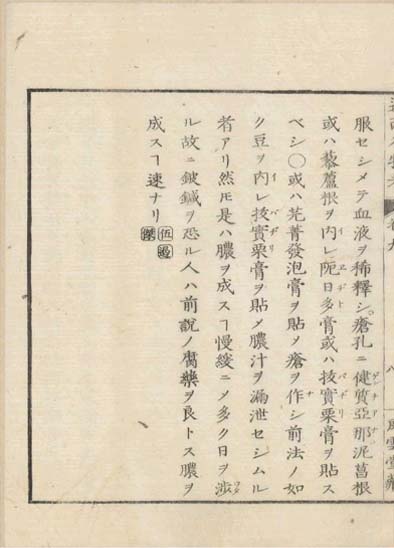 服セシメテ血液ヲ稀釋シ瘡孔ニ健質亞那泥菖根
或ハ藜蘆根ヲ内レ阨日多膏或ハ抜實栗膏ヲ貼ス
ベシ〇或ハ芫菁發泡膏ヲ貼メ瘡ヲ作シ前法ノ如
ク豆ヲ内レ抜實栗膏ヲ貼メ膿汁ヲ漏泄セシムル
者アリ然𪜈是ハ膿ヲ成スヿ慢緩ニメ多ク日ヲ渉
ル故ニ鈹鍼ヲ恐ル人ハ前説ノ腐藥ヲ良トス膿ヲ
成スヿ速ナリ